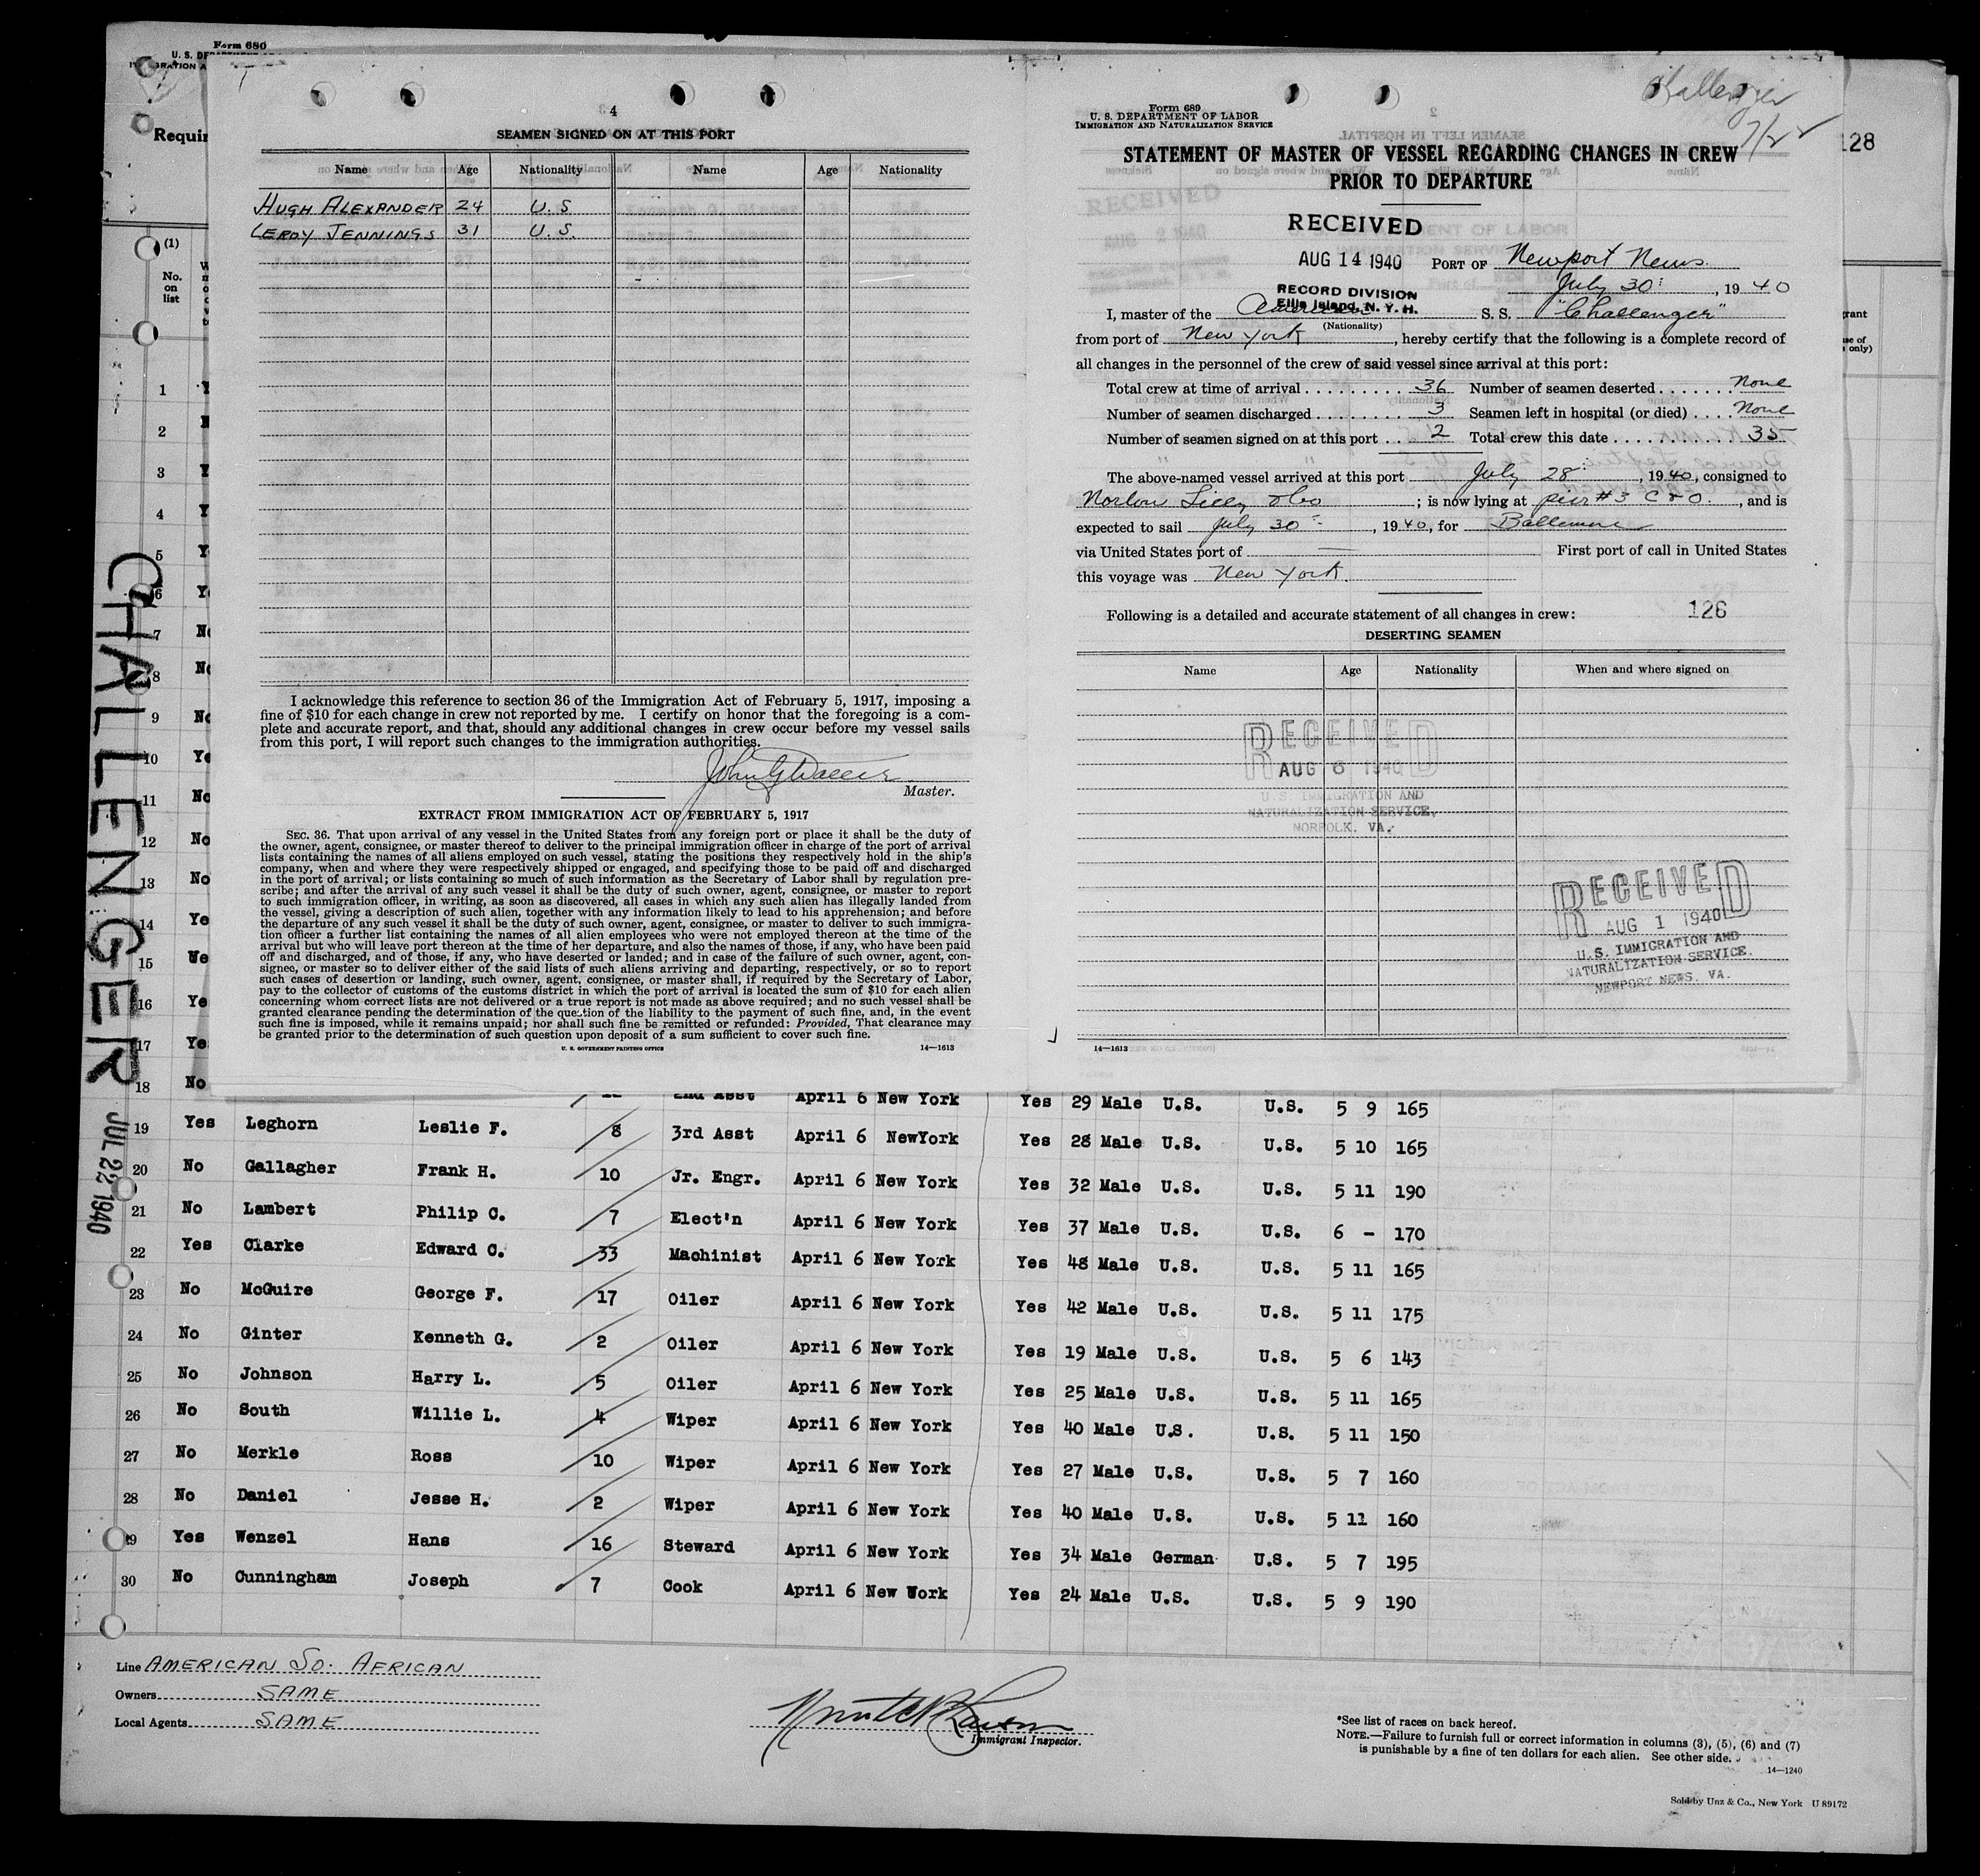 Form 680
Requir
128
4
SEAMEN SIGNED ON AT THIS PORT
Name Age Nationality Name Age Nationality
HUGH ALEXANDER 24 U.S
LEROY JENNINGS 31 U.S.
I acknowledge this reference to section 36 of the Immigration Act of February 5, 1917, imposing a
fine of $10 for each change in crew not reported by me. I certify on honor that the foregoing is a com-
plete and accurate report, and that, should any additional changes in crew occur before my vessel sails
from this port, I will report such changes to the immigration authorities.
Master.
EXTRACT FROM IMMIGRATION ACT OF FEBRUARY 5, 1917
SEC. 36. That upon arrival of any vessel in the United States from any foreign port or place it shall be the duty of
the owner, agent, consignee, or master thereof to deliver to the principal immigration officer in charge of the port of arrival
lists containing the names of all aliens employed on such vessel, stating the positions they respectively hold in the ship's
company, when and where they were respectively shipped or engaged, and specifying those to be paid off and discharged
in the port of arrival; or lists containing so much of such information as the Secretary of Labor shall by regulation pre-
scribe; and after the arrival of any such vessel it shall be the duty of such owner, agent, consignee, or master to report
to such immigration officer, in writing, as soon as discovered, all cases in which any such alien has illegally landed from
the vessel, giving a description of such alien, together with any information likely to lead to his apprehension; and before
the departure of any such vessel it shall be the duty of such owner, agent, consignee, or master to deliver to such immigra-
tion officer a further list containing the names of all alien employees who were not employed thereon at the time of the
arrival but who will leave port thereon at the time of her departure, and also the names of those, if any, who have been paid
off and discharged, and of those, if any, who have deserted or landed; and in case of the failure of such owner, agent, con-
signee, or master so to deliver either of the said lists of such aliens arriving and departing, respectively, or so to report
such cases of desertion or landing, such owner, agent, consignee, or master shall, if required by the Secretary of Labor,
pay to the collector of customs of the customs district in which the port of arrival is located the sum of $10 for each alien
concerning whom correct lists are not delivered or a true report is not made as above required; and no such vessel shall be
granted clearance pending the determination of the question of the liability to the payment of such fine, and, in the event
such fine is imposed, while it remains unpaid; nor shall such fine be remitted or refunded: Provided, That clearance may
be granted prior to the determination of such question upon deposit of a sum sufficient to cover such fine.
U. S. GOVERNMENT PRINTING OFFICE 14—1613
Form 689
U. S. DEPARTMENT OF LABOR
IMMIGRATION AND NATURALIZATION SERVICE
7/22
STATEMENT OF MASTER OF VESSEL REGARDING CHANGES IN CREW
PRIOR TO DEPARTURE
RECEIVED
AUG 14 1940
RECORD DIVISION
Ellis Island, N. Y. H.
PORT OF Newport News
July 30, 1940
I, master of the American S. S. "Challenger"
(Nationality)
from port of New York, hereby certify that the following is a complete record of
all changes in the personnel of the crew of said vessel since arrival at this port:
Total crew at time of arrival 36 Number of seamen deserted None
Number of seamen discharged 3 Seamen left in hospital (or died) None
Number of seamen signed on at this port 2 Total crew this date 35
The above-named vessel arrived at this port July 28, 1940, consigned to
Norton Lilly & Co; is now lying at pier #3 C & O., and is
expected to sail July 30, 1940, for Baltimore
via United States port of — First port of call in United States
this voyage was New York.
Following is a detailed and accurate statement of all changes in crew: 126
DESERTING SEAMEN
Name Age Nationality When and where signed on
RECEIVED
AUG 6 1940
U.S. IMMIGRATION AND
NATURALIZATION SERVICE,
NORFOLK, VA.
RECEIVED
AUG 1 1940
U.S. IMMIGRATION AND
NATURALIZATION SERVICE.
NEWPORT NEWS. VA.
14—1613
CHALLENGER
JUL 22 1940
(1)
No.
on
list
1
2
3
4
5
6
7
8
9 No
10 Ye
11 No
12 No
13 No
14 Ye
15 We
16 Ye
17 Ye
18 No 2nd Asst April 6 New York Yes 29 Male U.S. U.S. 5 9 165
19 Yes Leghorn Leslie F. 8 3rd Asst April 6 NewYork Yes 28 Male U.S. U.S. 5 10 165
20 No Gallagher Frank H. 10 Jr. Engr. April 6 New York Yes 32 Male U.S. U.S. 5 11 190
21 No Lambert Philip C. 7 Elect'n April 6 New York Yes 37 Male U.S. U.S. 6 - 170
22 Yes Clarke Edward C. 33 Machinist April 6 New York Yes 48 Male U.S. U.S. 5 11 165
23 No McGuire George F. 17 Oiler April 6 New York Yes 42 Male U.S. U.S. 5 11 175
24 No Ginter Kenneth G. 2 Oiler April 6 New York Yes 19 Male U.S. U.S. 5 6 143
25 No Johnson Harry L. 5 Oiler April 6 New York Yes 25 Male U.S. U.S. 5 11 165
26 No South Willie L. 4 Wiper April 6 New York Yes 40 Male U.S. U.S. 5 11 150
27 No Merkle Ross 10 Wiper April 6 New York Yes 27 Male U.S. U.S. 5 7 160
28 No Daniel Jesse H. 2 Wiper April 6 New York Yes 40 Male U.S. U.S. 5 11 160
29 Yes Wenzel Hans 16 Steward April 6 New York Yes 34 Male German U.S. 5 7 195
30 No Cunningham Joseph 7 Cook April 6 New Work Yes 24 Male U.S. U.S. 5 9 190
Line AMERICAN SO. AFRICAN
Owners SAME
Local Agents SAME
Immigrant Inspector.
*See list of races on back hereof.
NOTE.—Failure to furnish full or correct information in columns (3), (5), (6) and (7)
is punishable by a fine of ten dollars for each alien. See other side.
14—1240
Sold by Unz & Co., New York U 89172